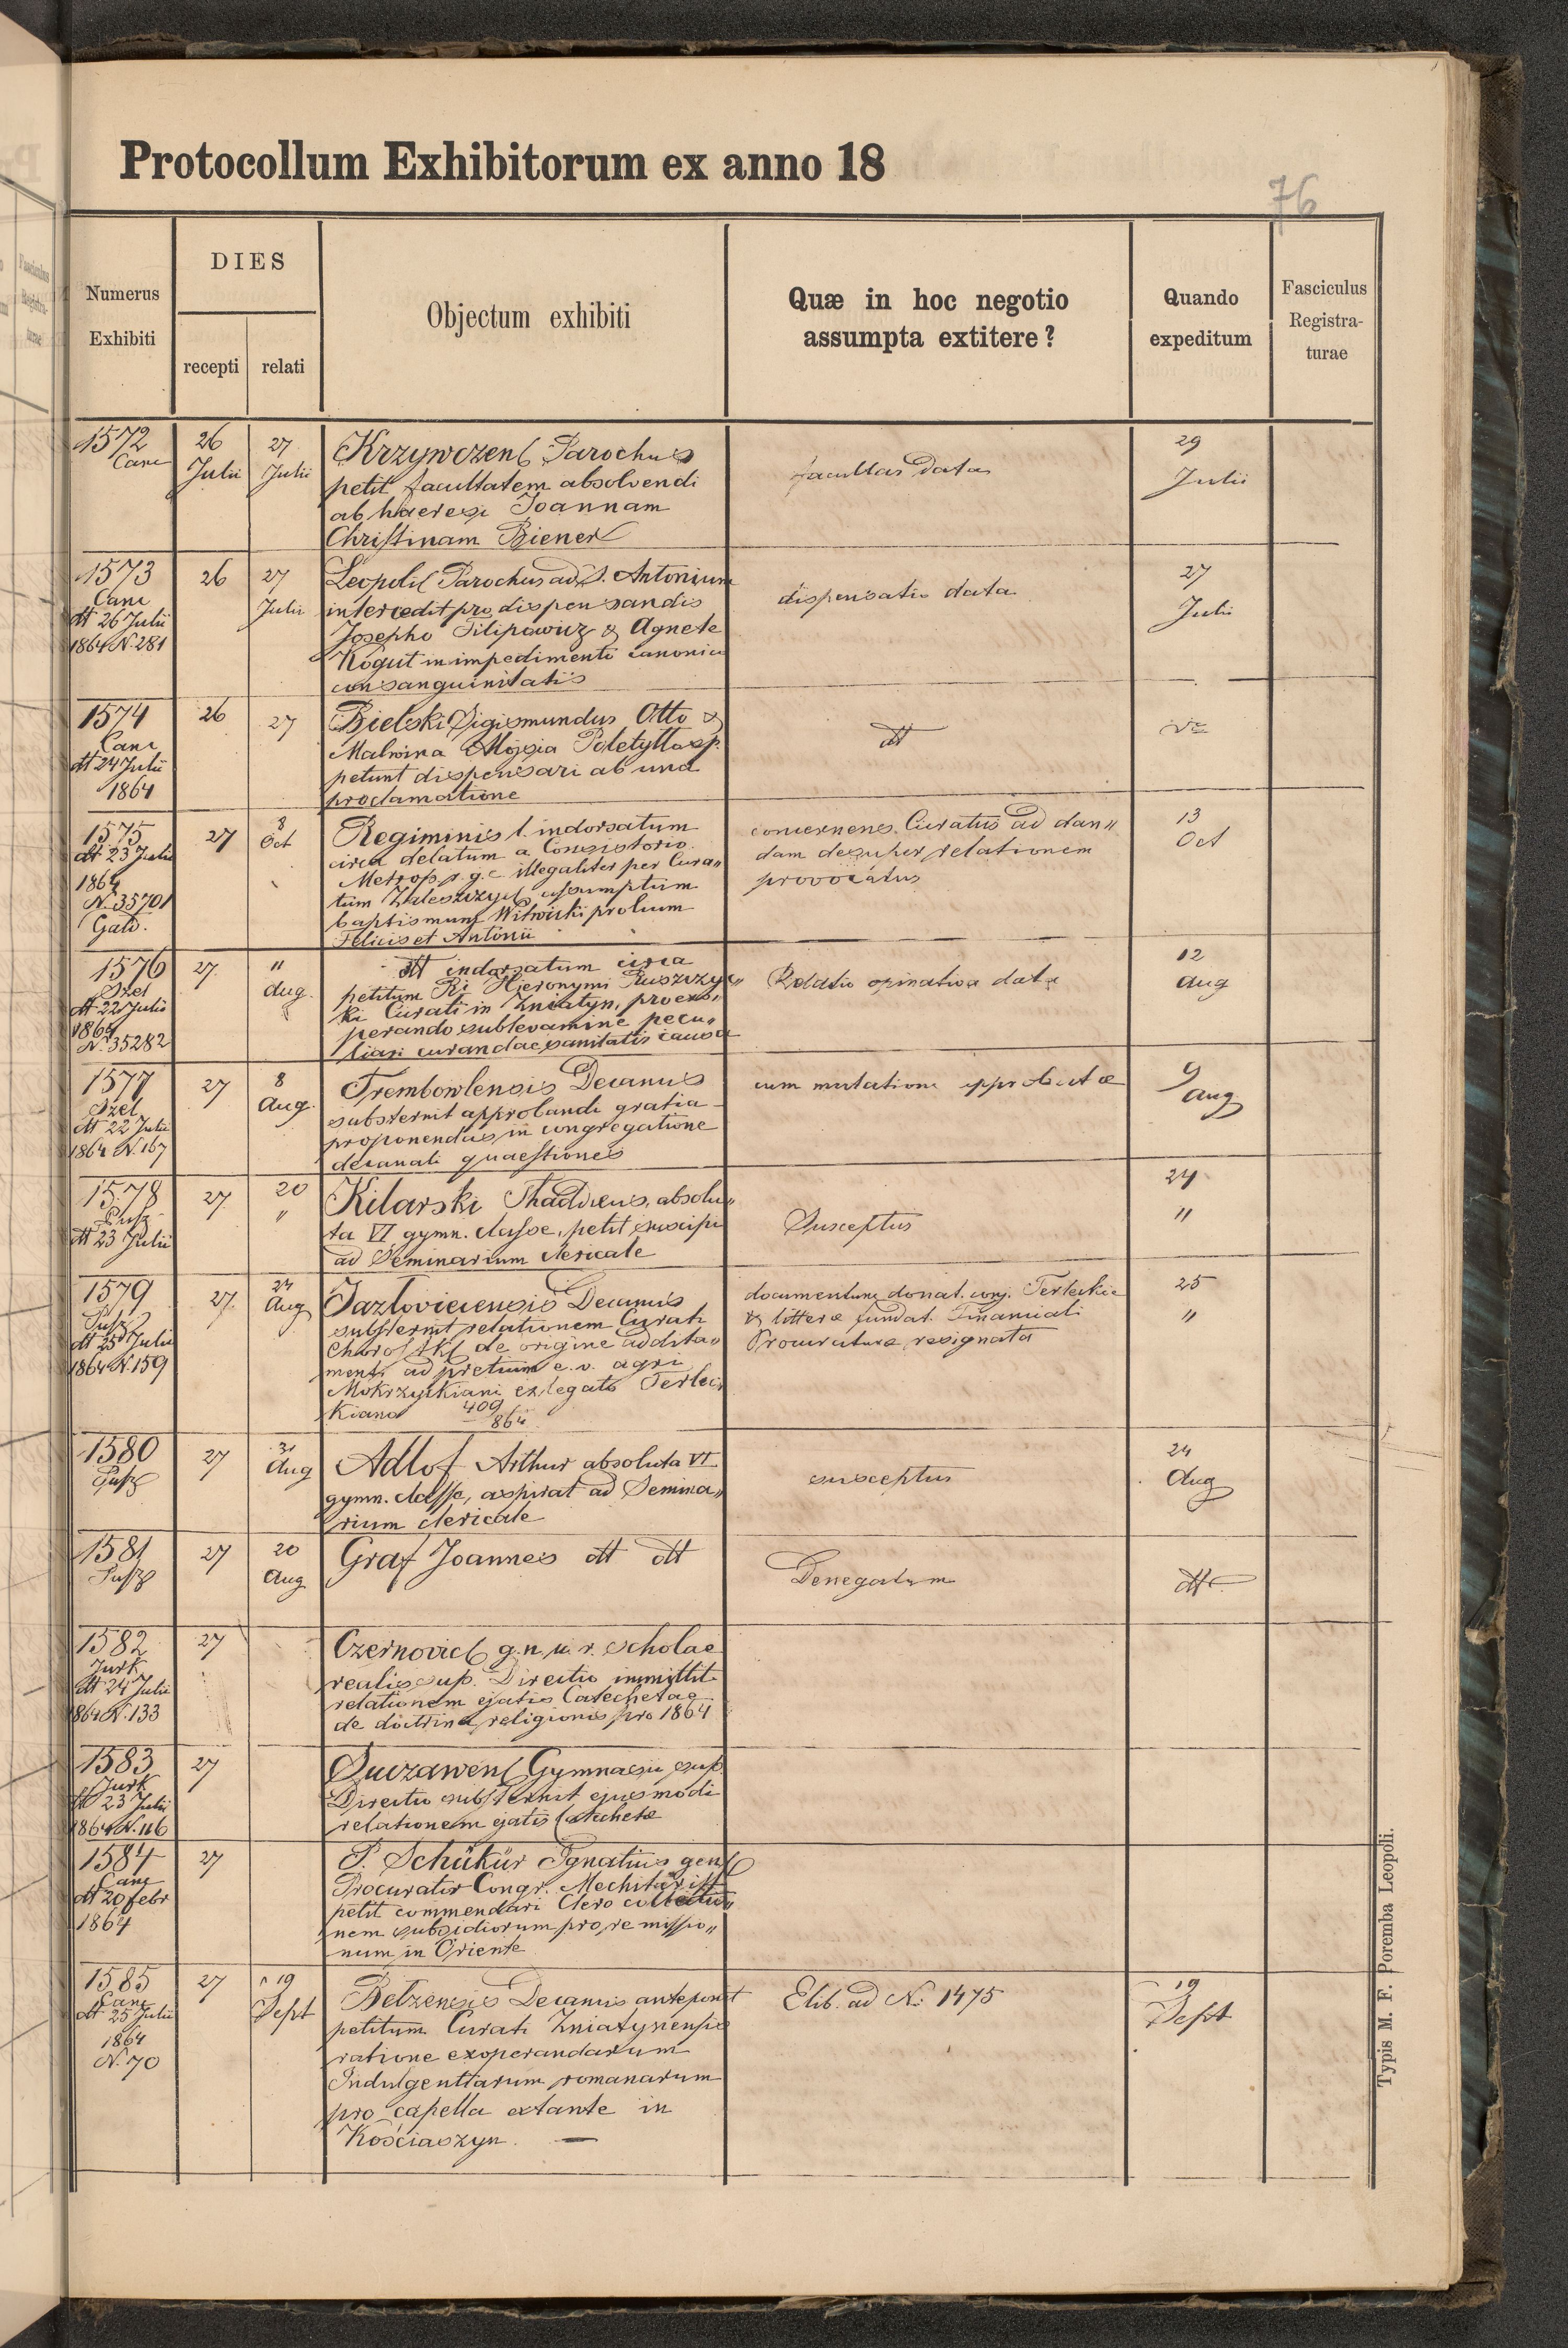 Protocollum Exhibitorum ex anno 18
76
Numerus
Exhibiti
DIES
recepti
relati
Objectum exhibiti
Quæ in hoc negotio
assumpta extitere?
Quando
expeditum
Fasciculus
Registra-
turae
1572
Canc
26
Julii
27
Julii
Krzywczens Parochus
petit facultatem absolvendi
ab haeresi Joannam
Christinam Biener
facultas data
29
Julii
1573
Canc
dtt 26 Julii
1864 N. 281
26
27
Julii
Leopoli Parochus ad S. Antonium
intercedit pro dispensandis
Josepho Filipowicz & Agnete
Kogut in impedimenti canonico
consanguinitatis
dispensatio data
27
Julii
1574
Canc
dtt 24 Julii
1864
26
27
Bielski Sigismundus Otto &
Malwina Aloysia Poletyllo sp.
petunt dispensari ab una
proclamatione
dtt
1575
dtt 23 Julii
1864
N. 35701
Galic.
27
8
Oct
Regiminis l. indorsatum
circa delatum a Consistorio
Metrop. r. g. c illegaliter per Cura„
tum Zaleszczyc assumptum
baptismum Witwicki prolium
Felicis et Antonii
concernens Curatus ad dan„
dam desuper relationem
provocatus
13
Oct
1576
Szel
dtt 22 Julii
1864
N. 35282
27
11
Aug.
dtt indorsatum circa
petitum Ri Hieronymi Ruszczyc„
ki Curati in Zniatyn, pro exo„
perando sublevamine pecu„
liari curandae sanitatis causa
Relatio opinativa data
12
Aug
1577
Szel
dtt 22 Julii
1864 N. 167
27
8
Aug.
Trembowlensis Decanus
substernit approbandi gratia
proponendas in congregatione
decanali quaestiones
cum mutatione approbatae
9
Aug
1578
Pusz
dtt 23 Julii
27
20
"
Kilarski Thaddaeus, absolu„
ta VI gymn. classe, petit suscipi
ad Seminarium clericale
Susceptus
24
"
1579
Pusz
dtt 25 Julii
1864 N. 159
27
24
Aug
Jazlovieciensis Decanus
substernit relationem Curati
Chorostk de origine addita„
menti ad pretium e. v. agri
Mokrzyckiani ex legato Terlec
kiano 409
864
documentum donat. conj. Terleckie
& littere fundat. Financiali
Procuraturae resignata
25
"
1580
Pusz
27
Aug
Adlof Arthur absoluta VI
gymn. classe, aspirat ad Semina„
rium clericale
susceptus
24
Aug
1581
Pusz
27
20
Aug
Graf Joannes dtt dtt
Denegatum
dtt
1582
Jurk
dtt 24 Julii
1864 N. 133
27
Czernovic g. n. u. r. scholae
realis sup. Directio immittit
relationem ejatis Catechetae
de doctrina religionis pro 1864
1583
Jurk
dtt 23 Julii
1864 N. 116
27
Suczawens Gymnasii sup.
Directio substernit ejusmodi
relationem ejatis Catechetae
1584
Canc
dtt 20 febr
1864
27
P. Schükür Ignatius gens
Procurator Congr. Mechitarist
petit commendari Clero collectio„
nem subsidiorum pro re missio„
num in Oriente
1585
Canc
dtt 25 Julii
1864
N. 70
27
19
Sept
Belzensis Decanus anteponit
petitum Curati Zniatynensis
ratione exoperandarum
Indulgentiarum romanarum
pro capella extante in
Kościaszyn. —
Elib. ad N. 1475
19
Sept
Typis M. F. Poremba Leopoli.